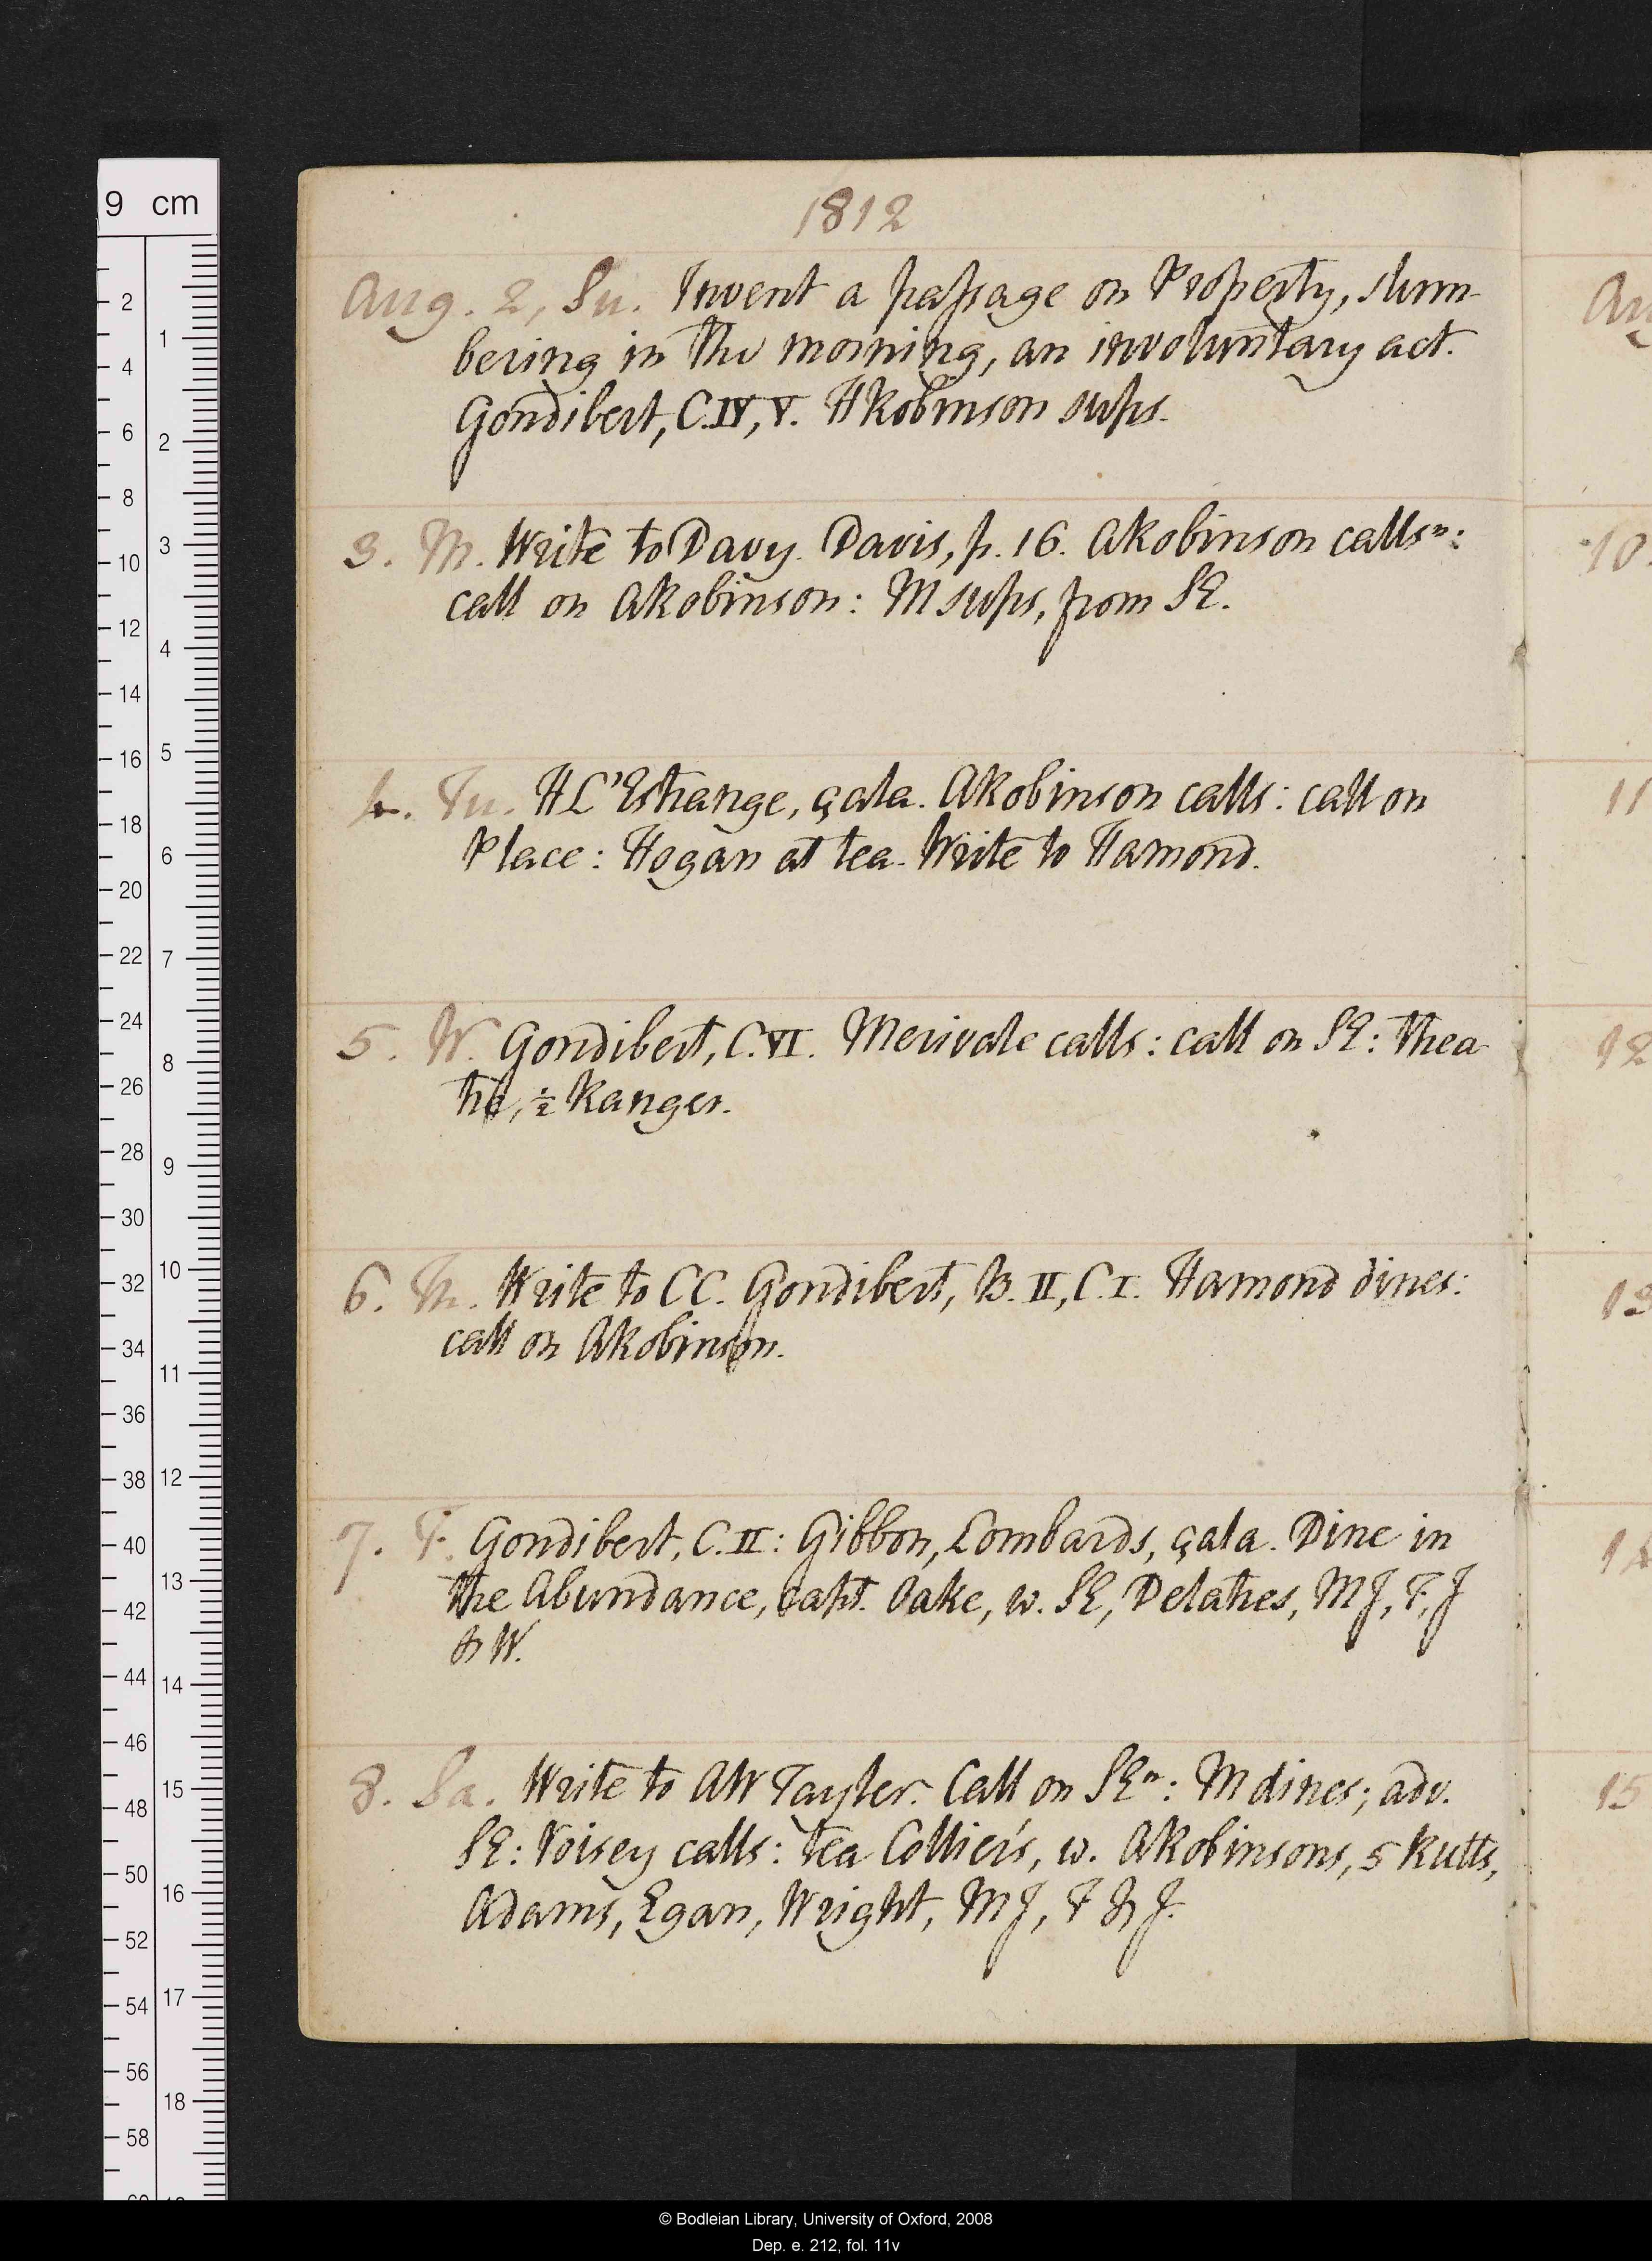 1812
Aug. 2, Su. Invent a passage on Property, slum-
bering in the morning, an involuntary act.
Gondibert, C. IV, V. H Robinson sups.
3. M. Write to Davy. Davis, p. 16. A Robinson calls n:
call on A Robinson: M sups, from SE.
4. Tu. H L'Estrange, çala. A Robinson calls: call on
Place: Hogan at tea. Write to Hamond.
5. W. Gondibert, C. VI. Merivale calls: call on SE: Thea-
tre, ½ Ranger.
6. Th. Write to CC. Gondibert, B. II, C. I. Hamond dines:
call on A Robinson.
7. F. Gondibert, C. II: Gibbon, Lombards, çala. Dine in
the Abundance, capt. Oake, w. SE, Delatres, MJ, F, J
& W.
8. Sa. Write to AW Tayler. Call on SE n: M dines; adv.
SE: Voisey calls: tea Collier's, w. A Robinsons, 5 Rutts,
Adams, Egan, Wright, MJ, F & J.
Au
10.
11
12
13
14
15
9 cm
2
4
6
8
10
12
14
16
18
20
22
24
26
28
30
32
34
36
38
40
42
44
46
48
50
52
54
56
58
1
2
3
4
5
6
7
8
9
10
11
12
13
14
15
16
17
18
© Bodleian Library, University of Oxford, 2008
Dep. e. 212, fol. 11v